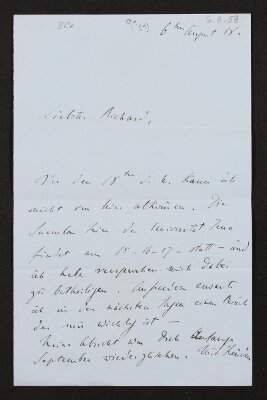 6. 8. 58
6ten August 58.
Liebster Richard,
Vor den 18ten d. M. kann ich
nicht von hier abkommen. Die
Secular Feier der Universität Jena
findet am 15-16-17- statt - und
ich habe versprochen mich dabei
zu betheiligen. Außerdem erwarte
ich in den nächsten Tagen einen Besuch
der mir wichtig ist -
Meine Absicht war Dich Anfangs
September wiederzusehen.